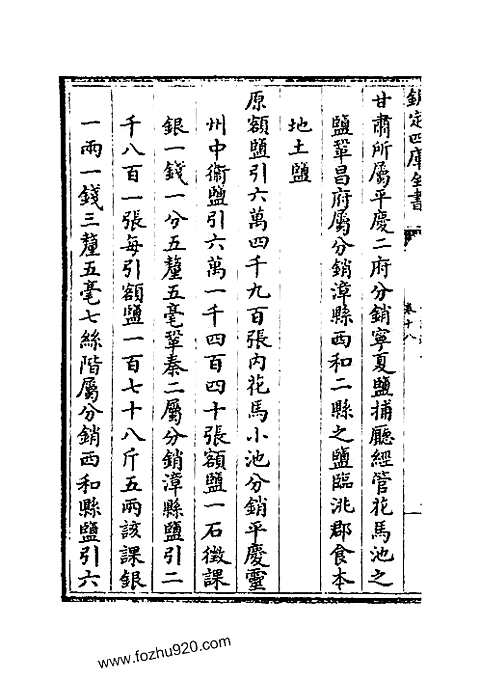 欽定四庫全書
卷十八
甘肅所屬平慶二府分銷寧夏鹽捕廳經管花馬池之
鹽鞏昌府屬分銷漳縣西和二縣之鹽臨洮郡食本
地土鹽
原額鹽引六萬四千九百張内花馬小池分銷平慶靈
州中衞鹽引六萬一千四百四十張額鹽一石徵課
銀一錢一分五釐五毫鞏秦二屬分銷漳縣鹽引二
千八百一張每引額鹽一百七十八斤五兩該課銀
一兩一錢三釐五毫七絲階屬分銷西和縣鹽引六
www.fozhu920.com